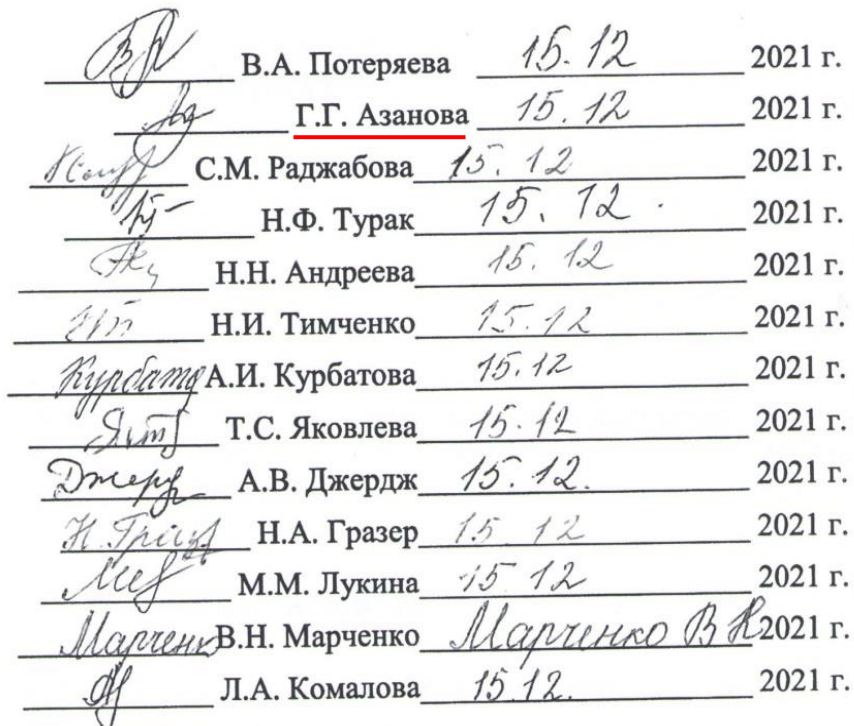 В.А. Потеряева 15.12 2021 г.
Г.Г. Азанова 15.12 2021 г.
С.М. Раджабова 15.12 2021 г.
Н.Ф. Турак 15.12. 2021 г.
Н.Н. Андреева 15.12 2021 г.
Н.И. Тимченко 15.12 2021 г.
А.И. Курбатова 15.12 2021 г.
Т.С. Яковлева 15.12 2021 г.
А.В. Джердж 15.12. 2021 г.
Н.А. Гразер 15 12 2021 г.
М.М. Лукина 15 12 2021 г.
Марченко В.Н. Марченко Марченко В Н 2021 г.
Л.А. Комалова 15.12. 2021 г.